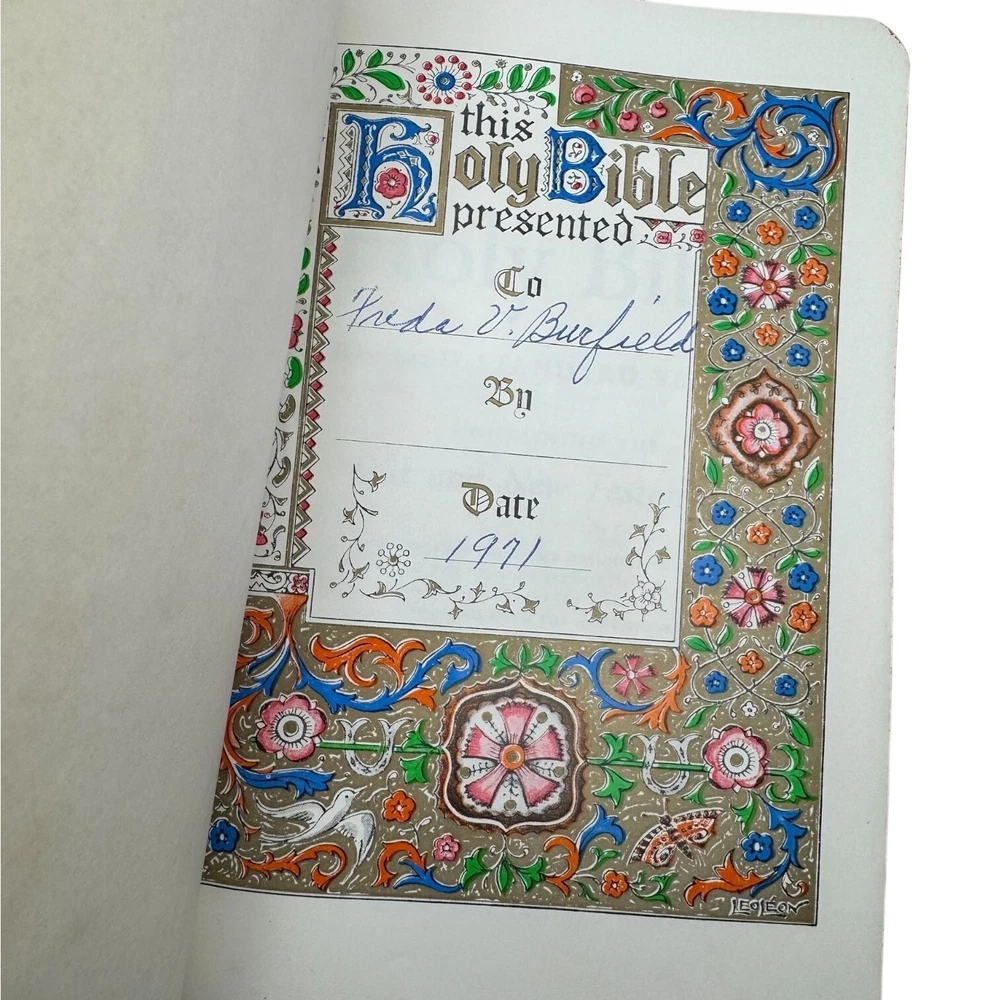 this
Holy Bible
presented
To
Freda V. Burfield
By
Date
1971
LEO LÉON